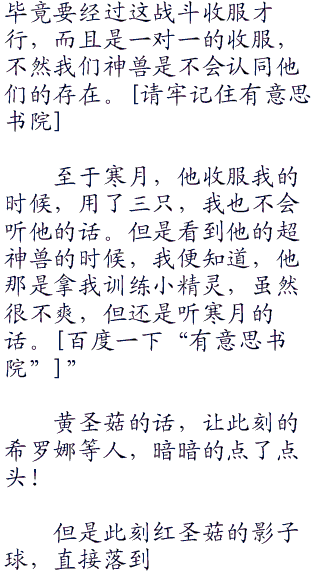 毕竟要经过这战斗收服才
行，而且是一对一的收服，
不然我们神兽是不会认同他
们的存在。[请牢记住有意思
书院]
至于寒月，他收服我的
时候，用了三只，我也不会
听他的话。但是看到他的超
神兽的时候，我便知道，他
那是拿我训练小精灵，虽然
很不爽，但还是听寒月的
话。[百度一下“有意思书
院”]”
黄圣菇的话，让此刻的
希罗娜等人，暗暗的点了点
头！
但是此刻红圣菇的影子
球，直接落到